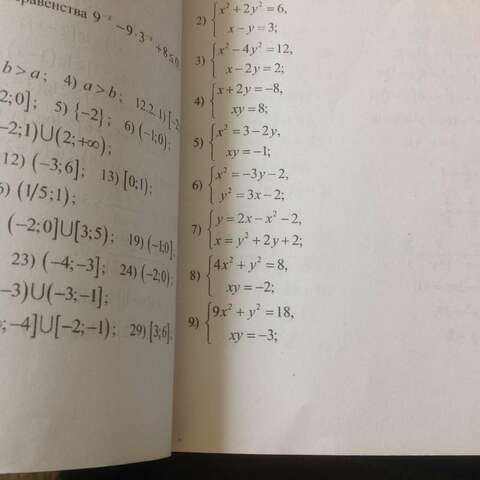 равенства 9⁻ˣ − 9·3⁻ˣ + 8 ≤ 0
b > a; 4) a > b; 12.2. 1) [−2
2;0]; 5) {−2}; 6) (−1;0);
−2;1)∪(2;+∞);
12) (−3;6]; 13) [0;1);
6) (1/5;1);
(−2;0]∪[3;5); 19) (−1;0],
23) (−4;−3]; 24) (−2;0);
−3)∪(−3;−1];
−4]∪[−2;−1); 29) [3;6];
2) { x² + 2y² = 6,
x − y = 3;
3) { x² − 4y² = 12,
x − 2y = 2;
4) { x + 2y = −8,
xy = 8;
5) { x² = 3 − 2y,
xy = −1;
6) { x² = −3y − 2,
y² = 3x − 2;
7) { y = 2x − x² − 2,
x = y² + 2y + 2;
8) { 4x² + y² = 8,
xy = −2;
9) { 9x² + y² = 18,
xy = −3;